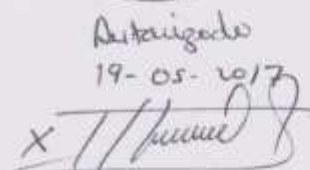 Autorizado
19-05-2017
X